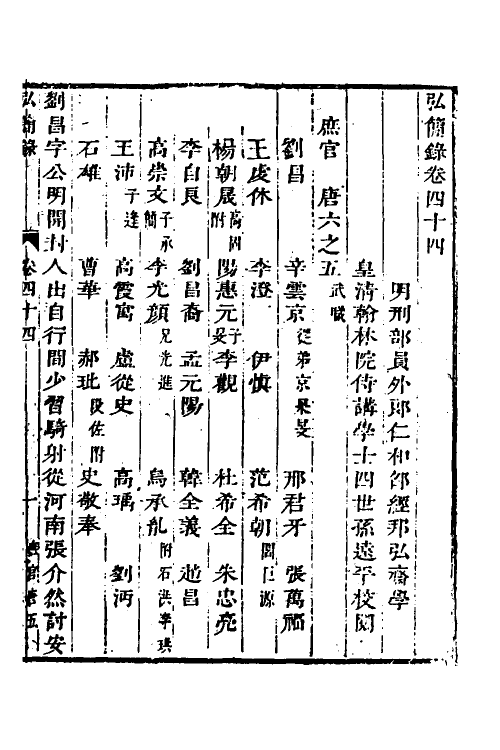 弘簡錄卷四十四
明刑部員外郎仁和邵經邦弘齋學
皇清翰林院侍講學士四世孫遠平校閱
庶官 唐六之五 武職
劉昌 辛雲京 從弟京杲旻 邢君牙 張萬福
王虔休 李澄 伊慎 范希朝 閻巨源
楊朝晟 附高固 陽惠元 子旻 李觀 杜希全 朱忠亮
李自良 劉昌裔 孟元陽 韓全義 趙昌
高崇文 子承簡 李光顏 兄光進 烏承玼 附石洪李珙
王沛 子逢 高霞寓 盧從史 高瑀 劉沔
石雄 曹華 郝玼 段佐附 史敬奉
劉昌字公明開封人出自行間少習騎射從河南張介然討安
弘簡錄 卷四十四 一